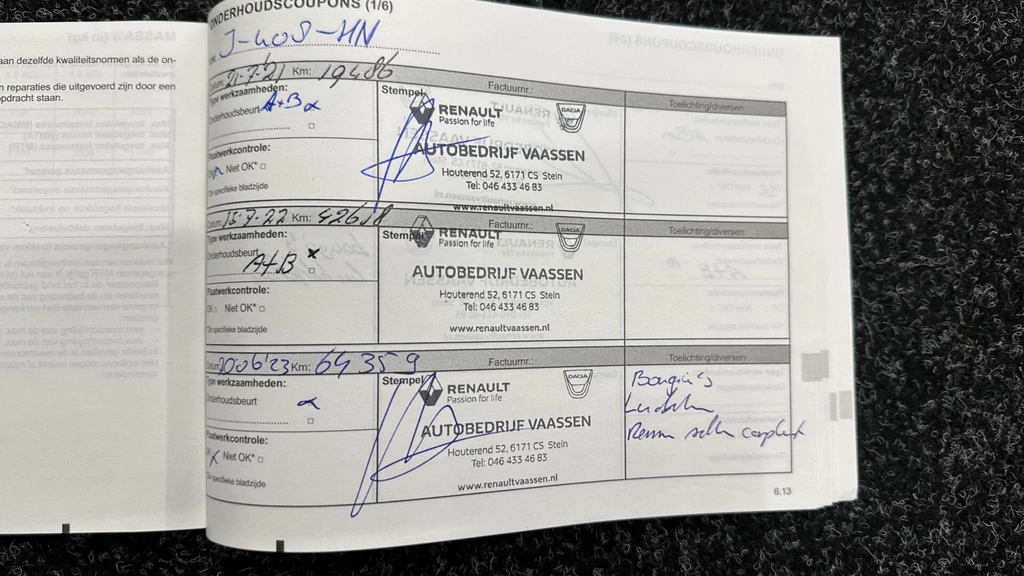 aan dezelfde kwaliteitsnormen als de on-
n reparaties die uitgevoerd zijn door een
opdracht staan.
ONDERHOUDSCOUPONS (1/6)
J-408-HN
Datum: 21-7-21 Km: 19486
Factuurnr.:
Toelichting/diversen
Type werkzaamheden:
Onderhoudsbeurt A+B
Plaatwerkcontrole:
Niet OK*
*Zie specifieke bladzijde
Stempel
RENAULT
Passion for life
DACIA
AUTOBEDRIJF VAASSEN
Houterend 52, 6171 CS Stein
Tel: 046 433 46 83
www.renaultvaassen.nl
Datum: 15-7-22 Km: 42618
Factuurnr.:
Toelichting/diversen
Type werkzaamheden:
Onderhoudsbeurt
A+B
Plaatwerkcontrole:
OK Niet OK*
*Zie specifieke bladzijde
Stempel
RENAULT
Passion for life
DACIA
AUTOBEDRIJF VAASSEN
Houterend 52, 6171 CS Stein
Tel: 046 433 46 83
www.renaultvaassen.nl
Datum: 2006'23 Km: 64359
Factuurnr.:
Toelichting/diversen
Type werkzaamheden:
Onderhoudsbeurt
Plaatwerkcontrole:
Niet OK*
*Zie specifieke bladzijde
Stempel
RENAULT
Passion for life
DACIA
AUTOBEDRIJF VAASSEN
Houterend 52, 6171 CS Stein
Tel: 046 433 46 83
www.renaultvaassen.nl
Bougie's
6.13